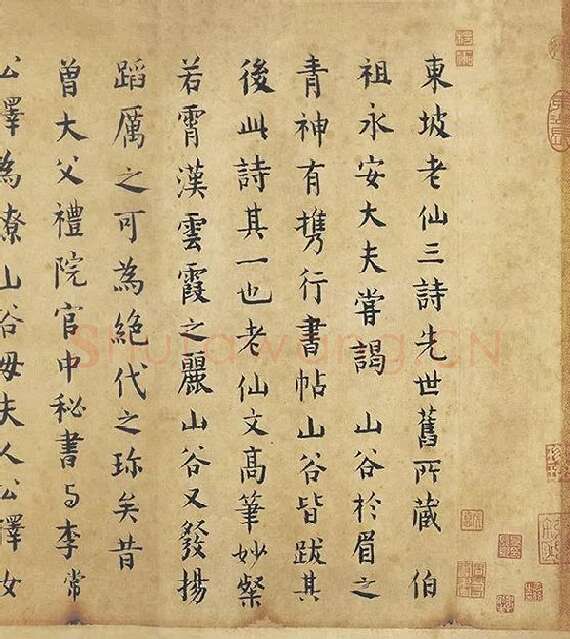 東坡老仙三詩先世舊所藏 伯
祖永安大夫嘗謁 山谷於眉之
青神有携行書帖山谷皆跋其
後此詩其一也老仙文高筆妙粲
若霄漢雲霞之麗山谷又發揚
蹈厲之可為絕代之珎矣昔
曾大父禮院官中秘書与李常
公擇為寮山谷母夫人公擇女